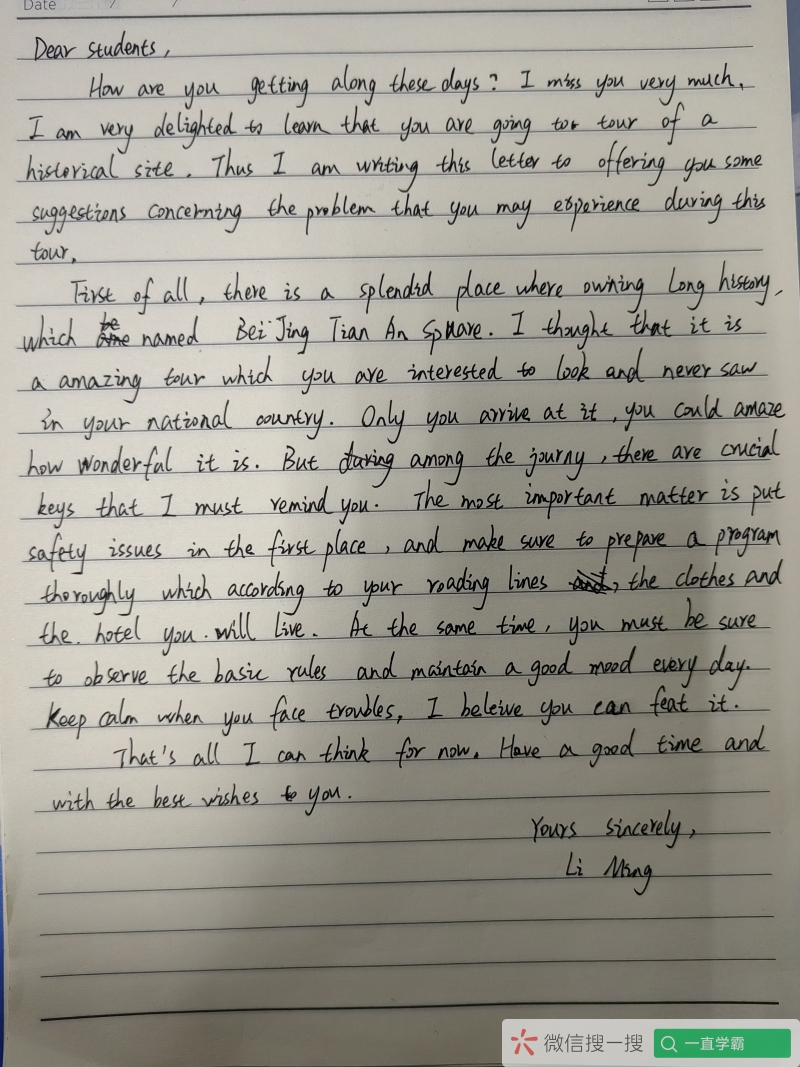 Date / /
Dear students,
How are you getting along these days? I miss you very much.
I am very delighted to learn that you are going to tour of a
historical site. Thus I am writing this letter to offering you some
suggestions concerning the problem that you may experience during this
tour.
First of all, there is a splendid place where owning long history,
which be named Bei Jing Tian An Square. I thought that it is
a amazing tour which you are interested to look and never saw
in your national country. Only you arrive at it, you could amaze
how wonderful it is. But among the journy, there are crucial
keys that I must remind you. The most important matter is put
safety issues in the first place, and make sure to prepare a program
thoroughly which according to your roading lines, the clothes and
the hotel you will live. At the same time, you must be sure
to observe the basic rules and maintain a good mood every day.
Keep calm when you face troubles, I beleive you can feat it.
That's all I can think for now. Have a good time and
with the best wishes to you.
Yours sincerely,
Li Ming
微信搜一搜 一直学霸